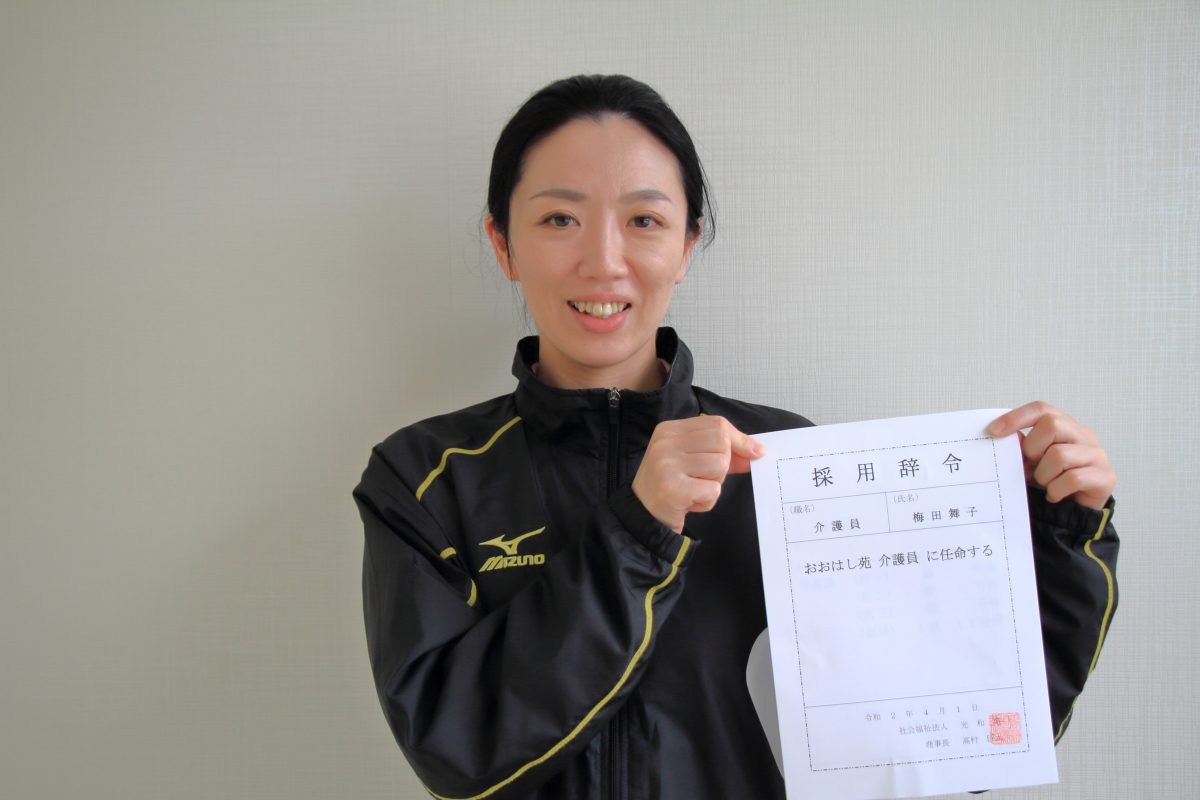 MIZUNO
採用辞令
(職名)
介護員
(氏名)
梅田舞子
おおはし苑 介護員 に任命する
令和 2 年 4 月 1 日
社会福祉法人 光和
理事長 髙村